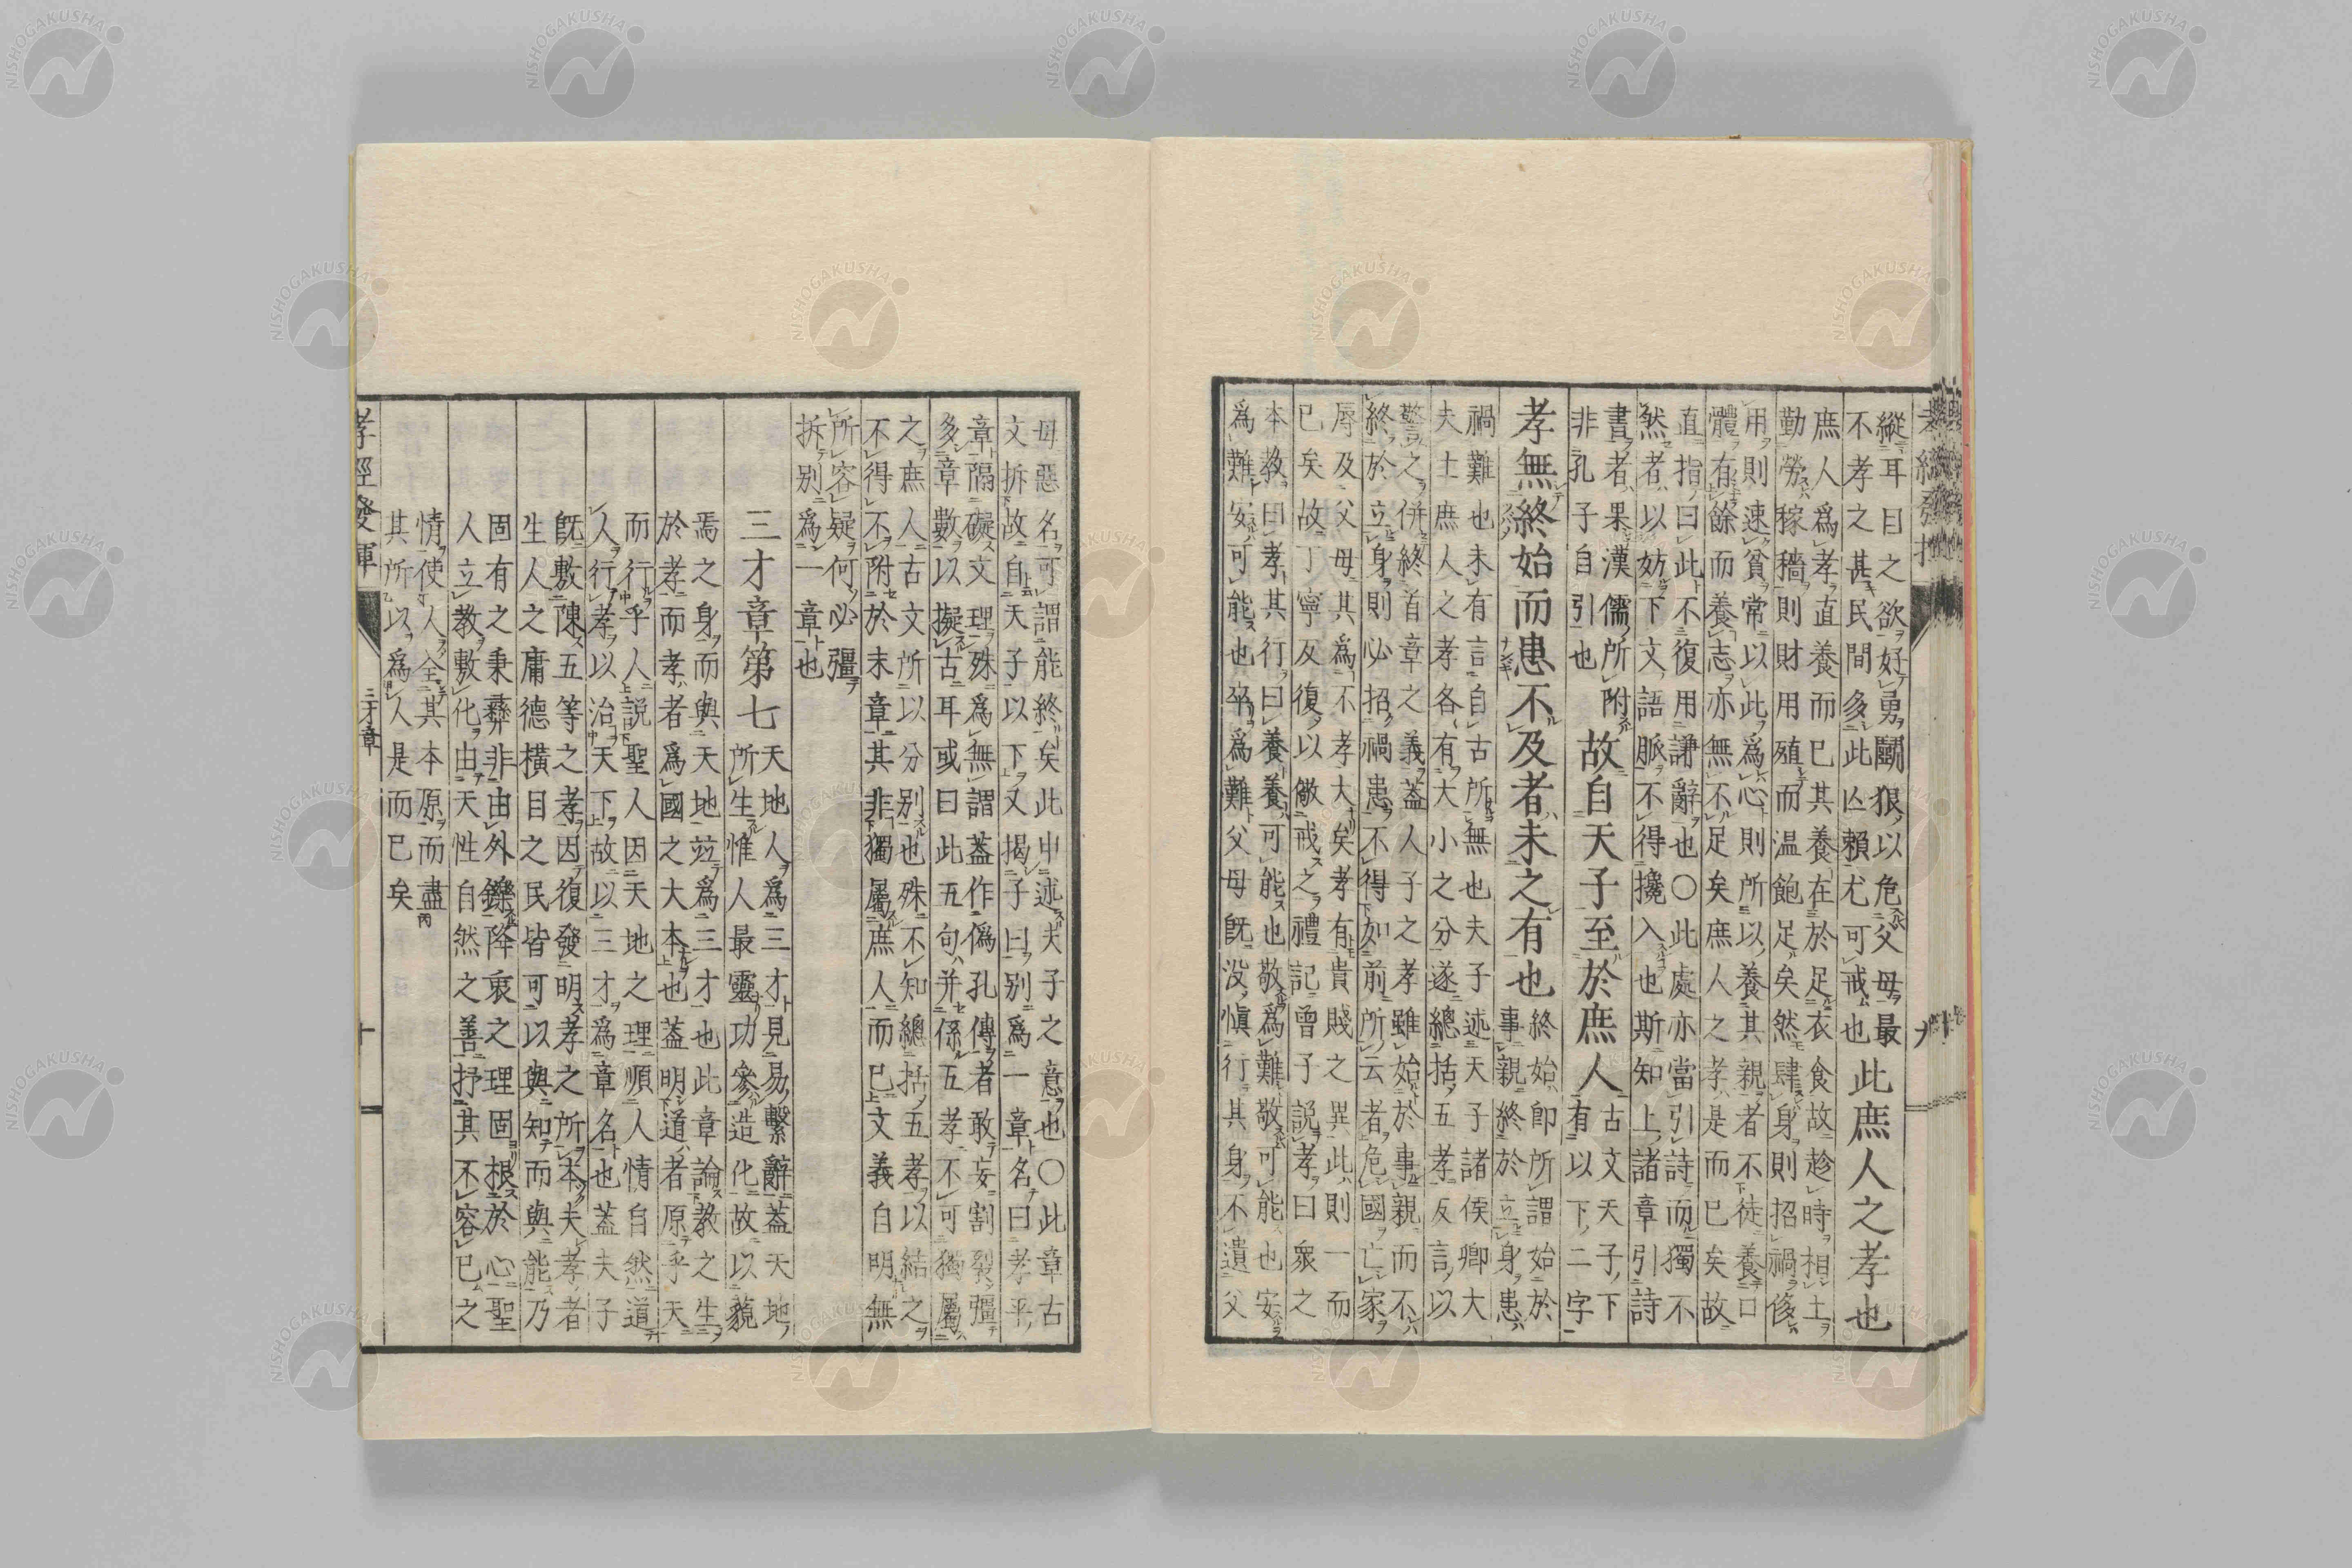 縱耳曰之欲好勇鬬狠以危父母最
不孝之甚民間多此凶賴尤可戒也
此庶人之孝也
庶人爲孝直養而已其養在於足衣食故趁時相土
勤勞稼穡則財用殖而温飽足矣然肆身則招禍侈
用則速貧常以此爲心則所以養其親者不徒養口
體有餘而養志亦無不足矣庶人之孝是而已矣故
直指曰此不復用謙辭也〇此處亦當引詩而獨不
然者以妨下文語脈不得攙入也斯知上諸章引詩
書者果漢儒所附
非孔子自引也
故自天子至於庶人
古文天子下
有以下二字
孝無終始而患不及者未之有也
終始即所謂始於
事親終於立身患
禍難也未有言自古所無也夫子述天子諸侯卿大
夫士庶人之孝各有大小之分遂總括五孝反言以
警之併終首章之義蓋人子之孝雖始於事親而不
終於立身則必招禍患不得如前所云者危國亡家
辱及父母其爲不孝大矣孝有貴賤之異此則一而
已矣故丁寧反復以儆戒之禮記曾子説孝曰衆之
本教曰孝其行曰養養可能也敬爲難敬可能也安
爲難安可能也卒爲難父母既没愼行其身不遺父
母惡名可謂能終矣此申述夫子之意也〇此章古
文拆故自天子以下又揭子曰別爲一章名曰孝平
章隔礙文理殊爲無謂蓋作僞孔傳者敢妄割裂彊
多章數以擬古耳或曰此五句并係五孝不可獨屬
之庶人古文所以分別也殊不知總括五孝以結之
不得不附於末章其非獨屬庶人而已上文義自明無
所容疑何必彊
拆別爲一章也
三才章第七
天地人爲三才見易繫辭蓋天地
所生惟人最靈功參造化故以藐
焉之身而與天地竝爲三才也此章論教之生
於孝而孝者爲國之大本也蓋明道者原乎天
而行乎人説聖人因天地之理順人情自然道
人行孝以治天下故以三才爲章名也蓋夫子
既敷陳五等之孝因復發明孝之所本夫孝者
生人之庸德橫目之民皆可以與知而與能乃
固有之秉彝非由外鑠降衷之理固根於心聖
人立教敷化由天性自然之善抒其不容已之
情使人全其本原而盡
其所以爲人是而已矣
孝經發揮
三才章
十